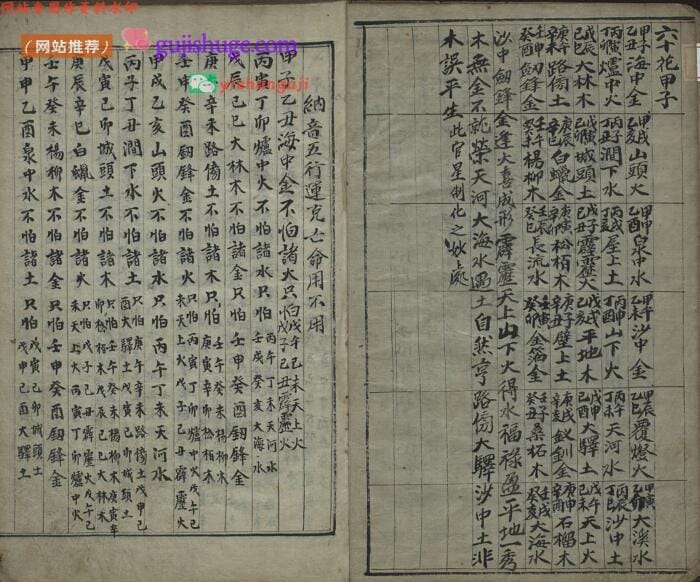 六十花甲子
甲子乙丑海中金 甲戌乙亥山頭火 甲申乙酉泉中水 甲午乙未沙中金 甲辰乙巳覆燈火 甲寅乙卯大溪水
丙寅丁卯爐中火 丙子丁丑澗下水 丙戌丁亥屋上土 丙申丁酉山下火 丙午丁未天河水 丙辰丁巳沙中土
戊辰己巳大林木 戊寅己卯城頭土 戊子己丑霹靂火 戊戌己亥平地木 戊申己酉大驛土 戊午己未天上火
庚午辛未路傍土 庚辰辛巳白蠟金 庚寅辛卯松栢木 庚子辛丑壁上土 庚戌辛亥釵釧金 庚申辛酉石榴木
壬申癸酉劔鋒金 壬午癸未楊柳木 壬辰癸巳長流水 壬寅癸卯金箔金 壬子癸丑桑柘木 壬戌癸亥大海水
沙中劔鋒金逢火喜成形霹靂天上山下火得水福禄盈平地一秀
木無金不能榮天河大海水遇土自然亨路傍大驛沙中土非
木誤平生 此官星制化之妙處
納音五行運克亡命用不用
甲子乙丑海中金不怕諸火只怕戊午己未天上火戊子己丑霹靂火
丙寅丁卯爐中火不怕諸水只怕丙午丁未天河水壬戌癸亥大海水
戊辰己巳大林木不怕諸金只怕壬申癸酉劔鋒金
庚午辛未路傍土不怕諸木只怕壬午癸未楊柳木庚寅辛卯松栢木
壬申癸酉劔鋒金不怕諸火只怕丙寅丁卯爐中火戊午己未天上火戊子己丑霹靂火
甲戌乙亥山頭火不怕諸水只怕丙午丁未天河水
丙子丁丑澗下水不怕諸土只怕庚午辛未路傍土戊申己酉大驛土戊寅己卯城頭土
戊寅己卯城頭土不怕諸木只怕壬午癸未楊柳木庚寅辛卯松栢木戊辰己巳大林木
庚辰辛巳白蠟金不怕諸火只怕戊子己丑霹靂火戊午己未天上火丙寅丁卯爐中火
壬午癸未楊柳木不怕諸金只怕壬申癸酉劔鋒金
甲申乙酉泉中水不怕諸土只怕戊寅己卯城頭土戊申己酉大驛土
（网站推荐）
gujishuge.com
yishanguji